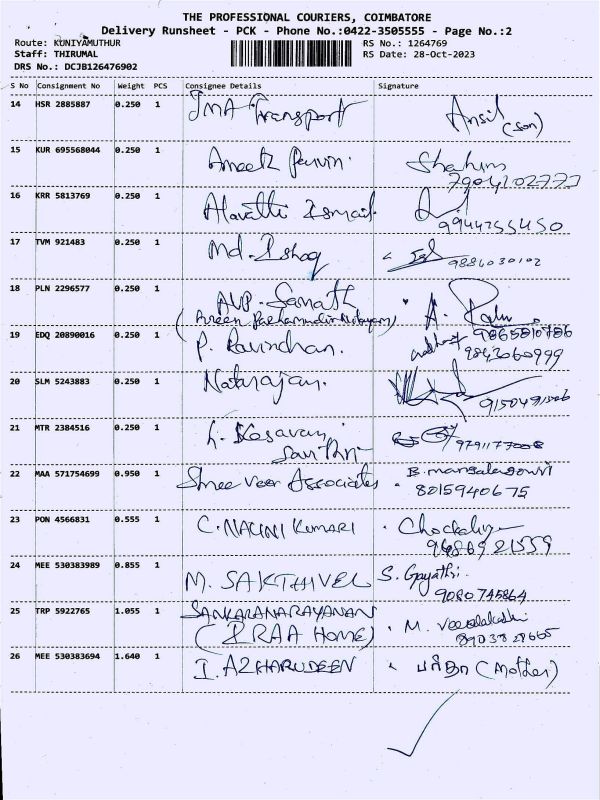 THE PROFESSIONAL COURIERS, COIMBATORE
Delivery Runsheet - PCK - Phone No.:0422-3505555 - Page No.:2
Route: KUNIYAMUTHUR RS No.: 1264769
Staff: THIRUMAL RS Date: 28-Oct-2023
DRS No.: DCJB126476902
S No Consignment No Weight PCS Consignee Details Signature
14 HSR 2885887 0.250 1 JMA Transport Ansil
(son)
15 KUR 695568044 0.250 1
7904102777
16 KRR 5813769 0.250 1 Ismail
9944255450
17 TVM 921483 0.250 1 Md. Ishaq 9886030102
18 PLN 2296577 0.250 1 AVP - A.
9865810786
19 EDQ 20890016 0.250 1 P. Ravindran. 9843060999
20 SLM 5243883 0.250 1 Natarajan.
21 MTR 2384516 0.250 1 Kesavan 9791177008
22 MAA 571754699 0.950 1 Shree Veer Associates B. mangalagowri
8015940675
23 PON 4566831 0.555 1 C. NALINI KUMARI
24 MEE 530383989 0.855 1 M. SAKTHIVEL S. Gayathri.
9080745864
25 TRP 5922765 1.055 1 SANKARANARAYANAN
(IRAA HOME) M.
26 MEE 530383694 1.640 1 I. AZHARUDEEN (Mother)